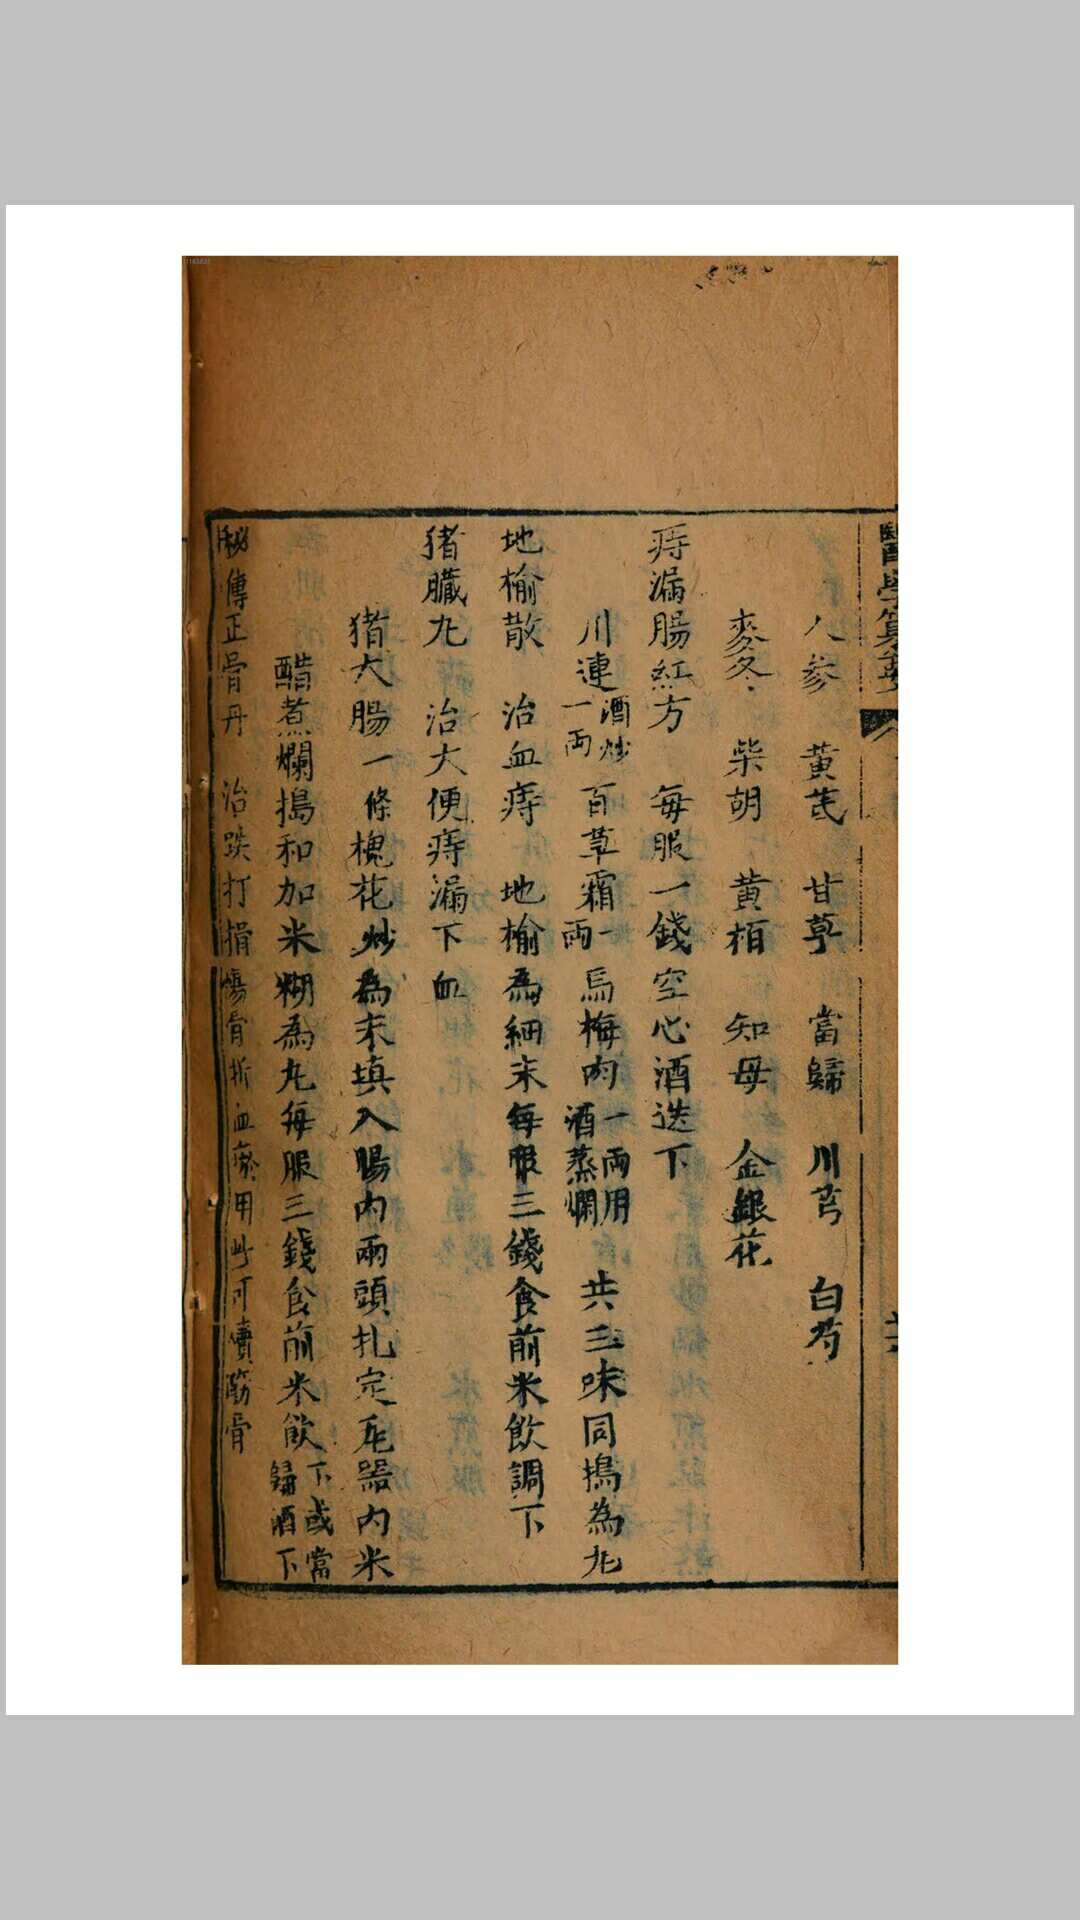 醫學纂要
人參 黃芪 甘草 當歸 川芎 白芍
麥冬 柴胡 黃栢 知母 金銀花
痔漏腸紅方 每服一錢空心酒送下
川連酒炒一兩百草霜一兩烏梅肉一兩用酒蒸爛 共三味同搗為丸
地榆散 治血痔 地榆為細末每服三錢食前米飲調下
猪臟丸 治大便痔漏下血
猪大腸一條槐花炒為末填入腸內兩頭扎定瓦器內米
醋煮爛搗和加米糊為丸每服三錢食前米飲下或當歸酒下
秘傳正骨丹 治跌打損傷骨折血瘀用此可續筋骨